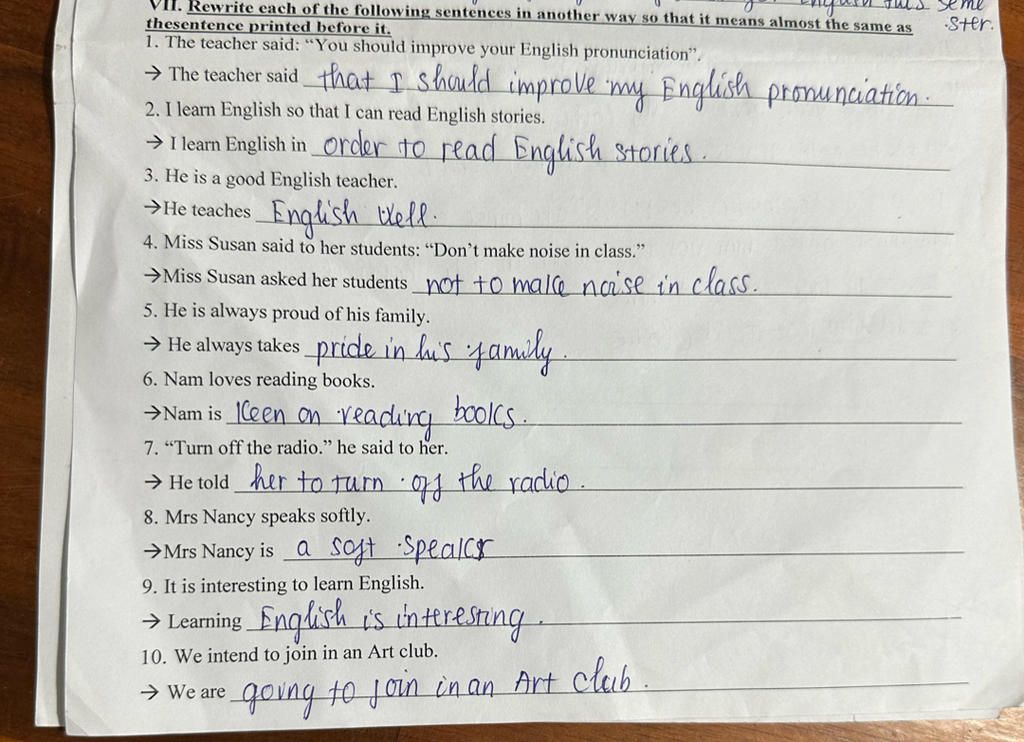 English this seme
VII. Rewrite each of the following sentences in another way so that it means almost the same as ster.
thesentence printed before it.
1. The teacher said: “You should improve your English pronunciation”.
→ The teacher said that I should improve my English pronunciation.
2. I learn English so that I can read English stories.
→ I learn English in order to read English stories.
3. He is a good English teacher.
→He teaches English well.
4. Miss Susan said to her students: “Don’t make noise in class.”
→Miss Susan asked her students not to make noise in class.
5. He is always proud of his family.
→ He always takes pride in his family.
6. Nam loves reading books.
→Nam is keen on reading books.
7. “Turn off the radio.” he said to her.
→ He told her to turn off the radio.
8. Mrs Nancy speaks softly.
→Mrs Nancy is a soft
9. It is interesting to learn English.
→ Learning English is interesting.
10. We intend to join in an Art club.
→ We are going to join in an Art club.